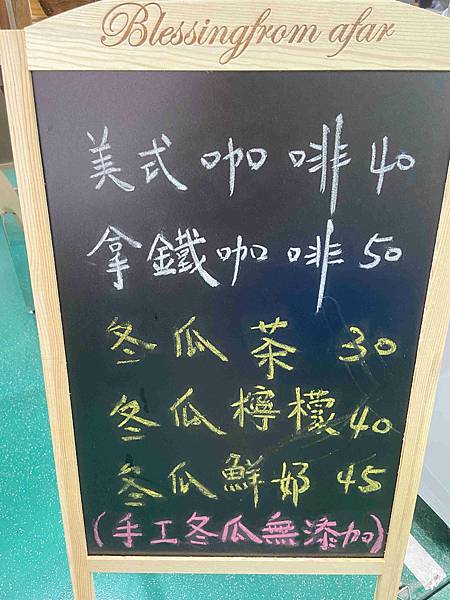 Blessingfrom afar
美式咖啡 40
拿鐵咖啡 50
冬瓜茶 30
冬瓜檸檬 40
冬瓜鮮奶 45
(手工冬瓜無添加)